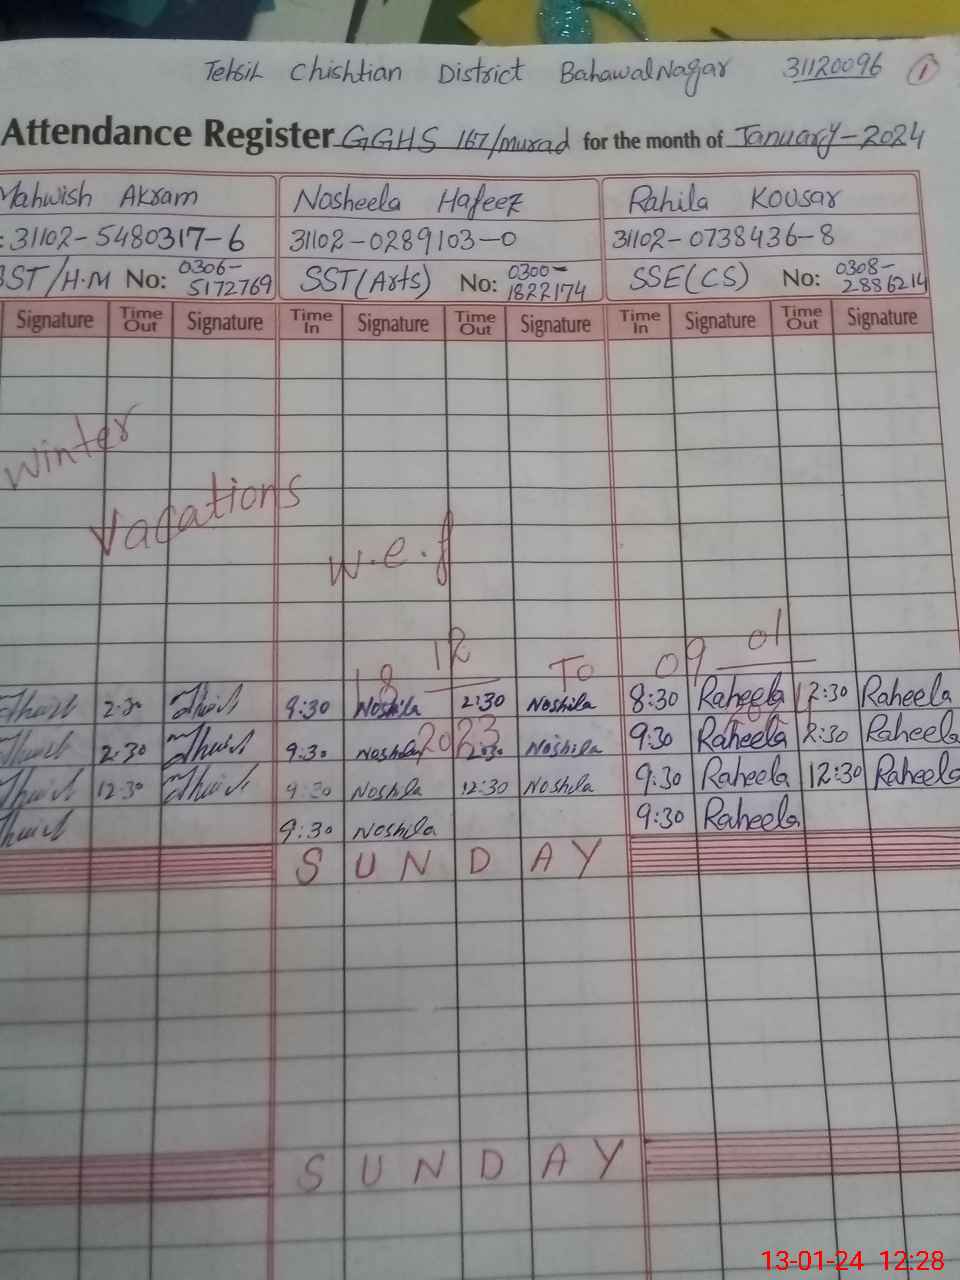 Tehsil Chishtian District BahawalNagar 31120096 1
Attendance Register GGHS 167/murad for the month of January-2024
Mahwish Akram Nosheela Hafeez Rahila Kousar
: 31102-5480317-6 31102-0289103-0 31102-0738436-8
SST/H.M No: 0306-5172769 SST(Arts) No: 0300-1822174 SSE(CS) No: 0308-2886214
Signature Time Out Signature Time In Signature Time Out Signature Time In Signature Time Out Signature
Winter
Vacations
w.e.f
18 12 2023 To 09 01
2:30 9:30 Noshila 2:30 Noshila 8:30 Raheela 12:30 Raheela
2:30 9:30 Noshila 2:30 Noshila 9:30 Raheela 2:30 Raheela
12:30 9:30 Noshila 12:30 Noshila 9:30 Raheela 12:30 Raheela
9:30 Noshila 9:30 Raheela
SUNDAY
SUNDAY
13-01-24 12:28